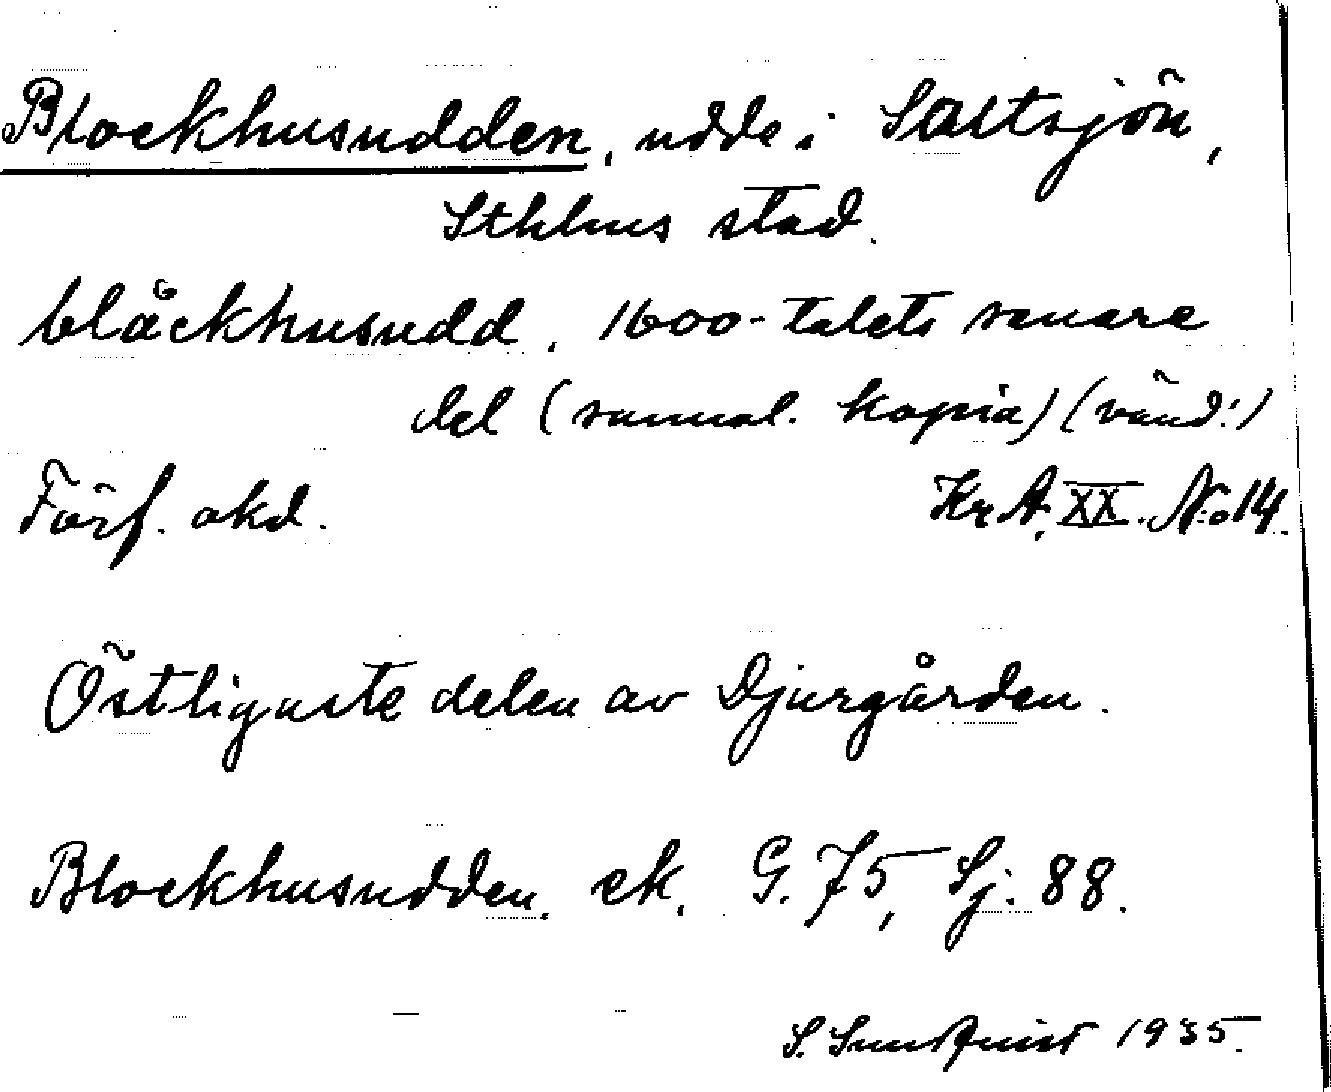 Blockhusudden, udde i Saltsjön,
Sthlms stad.
blåckhusudd. 1600-talets senare
del (samml. kopia) (vänd!)
Förf. okd. Kr A, XX. No 14.
Östligaste delen av Djurgården.
Blockhusudden. ek. G. 75, Sj. 88.
S. Sundquist 1935.